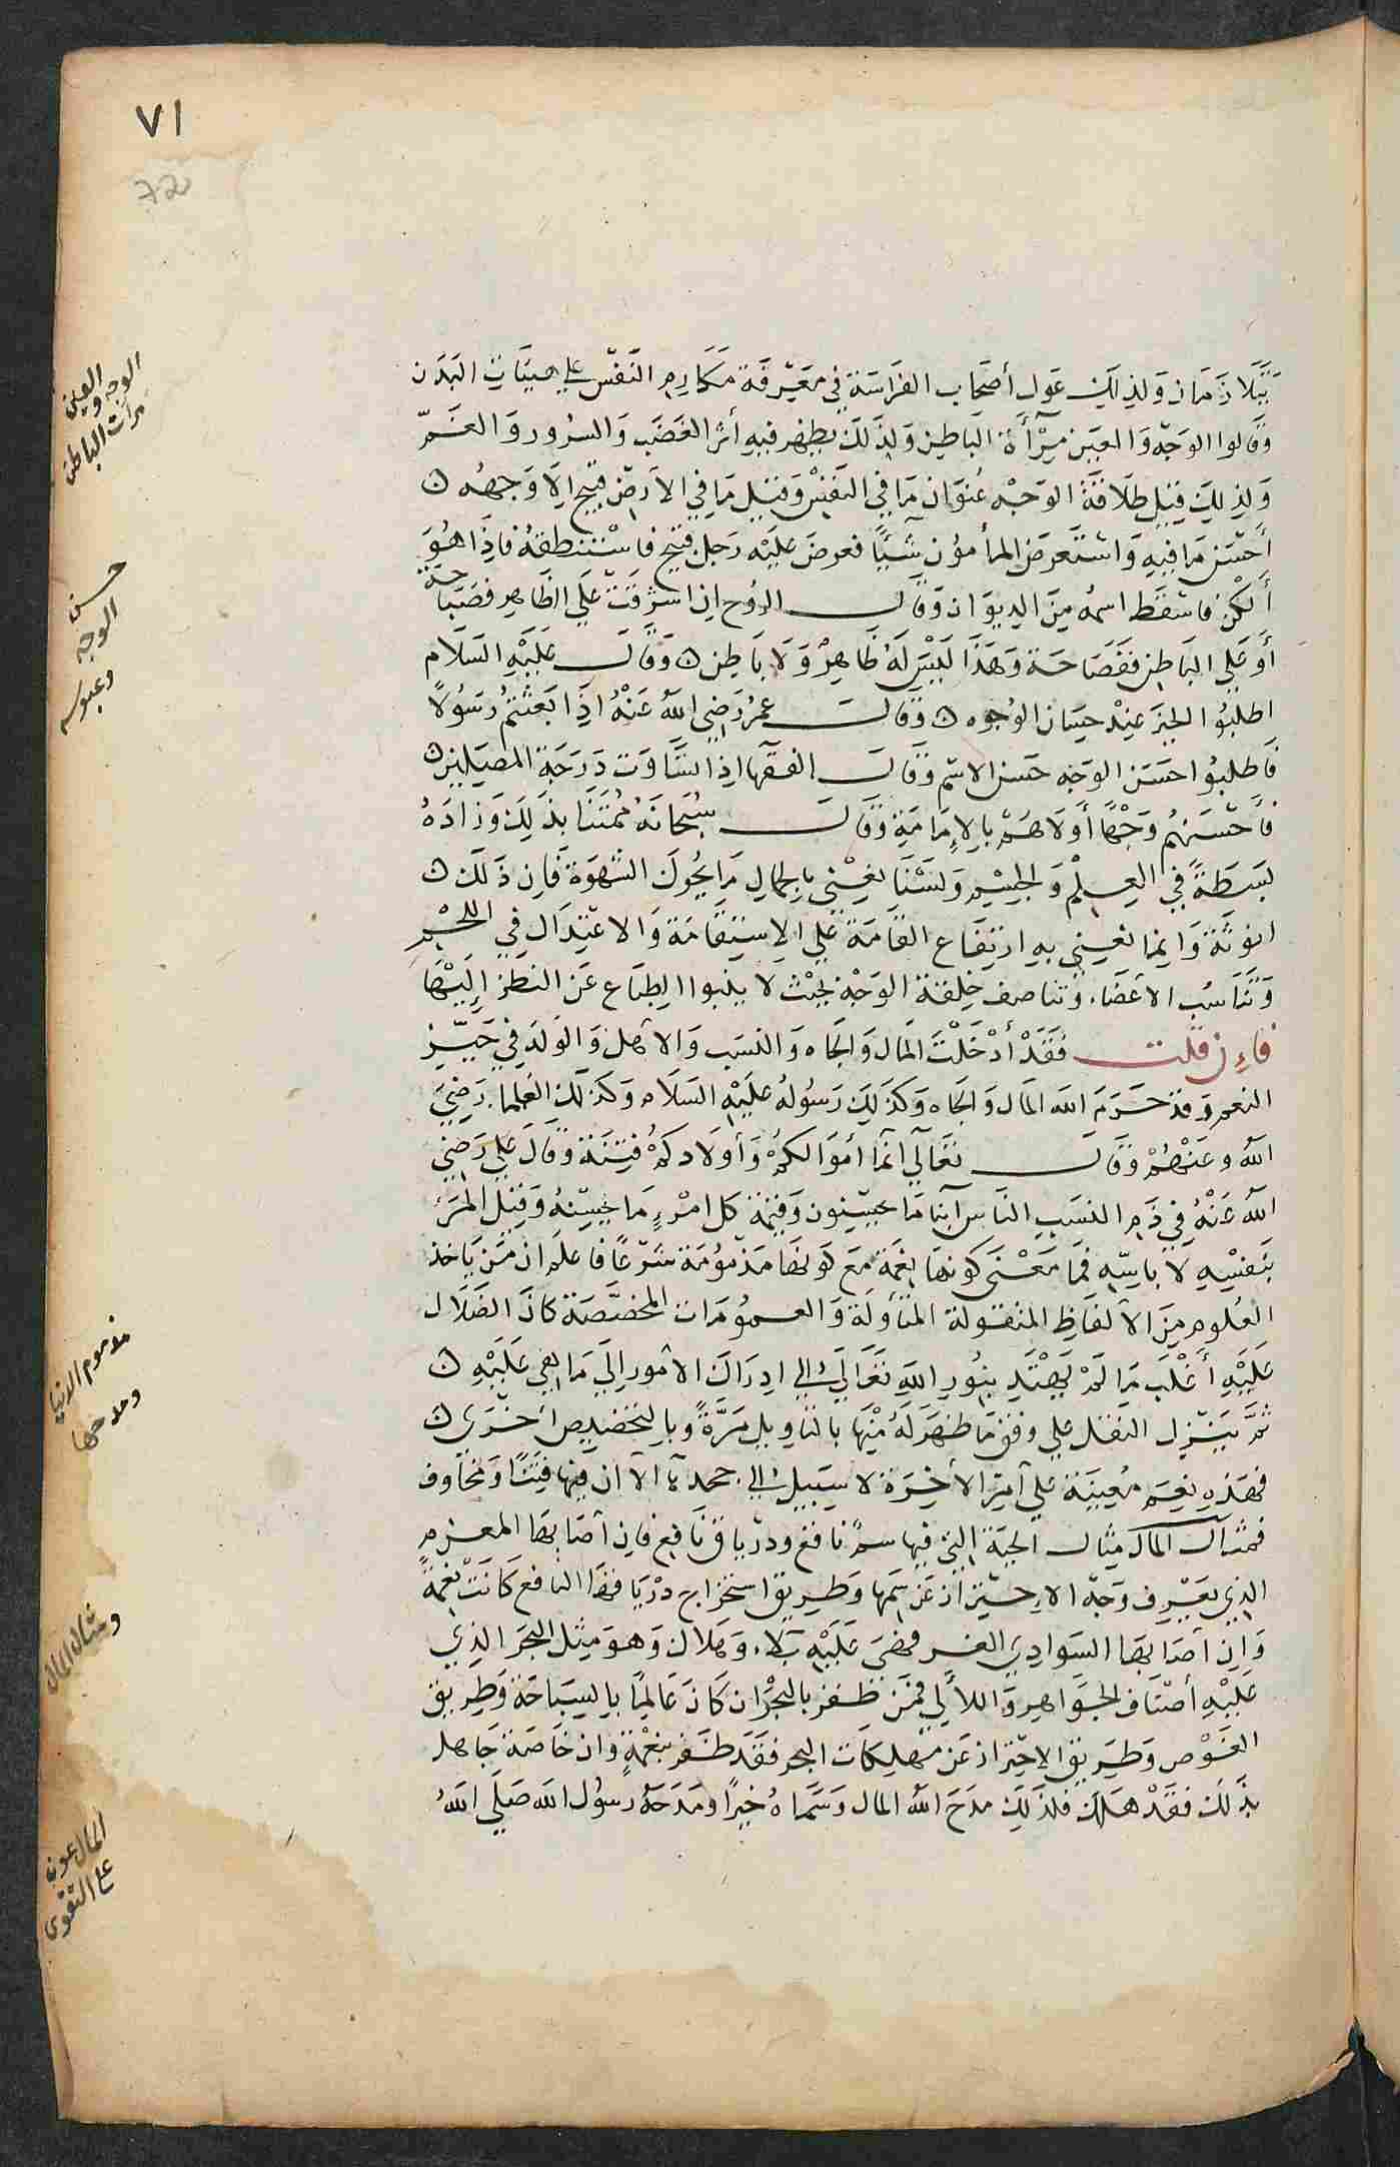 ٧١
72
يتلازمان ولذلك عول أصحاب الفراسة في معرفة مكارم النفس علي هيئات البدن
وقالوا الوجه والعين مرآة الباطن ولذلك يظهر فيه أثر الغضب والسرور والغم
ولذلك قيل طلاقة الوجه عنوان ما في النفس وقيل ما في الارض قبيح الا وجهه
أحسن ما فيه واستعرض المأمون شيئا فعرض عليه رجل قبيح فاستنطقه فاذا هو
ألكن فاسقط اسمه من الديوان وقال الروح ان اشرقت علي الظاهر فصباحة
أو علي الباطن ففصاحة وهذا ليس له ظاهر ولا باطن وقال عليه السلام
اطلبوا الخير عند حسان الوجوه وقال عمر رضي الله عنه اذا بعثتم رسولا
فاطلبوا حسن الوجه حسن الاسم وقال الفقها اذا تساوت درجة المصلين
فأحسنهم وجها أولاهم بالإمامة وقال سبحانه ممتنا بذلك وزاده
بسطة في العلم والجسم ولسنا نعني بالجمال ما يحرك الشهوة فان ذلك
انوثة وإنما نعني به ارتفاع القامة علي الاستقامة والاعتدال في اللحم
وتناسب الاعضاء وتناصف خلقة الوجه بحيث لا ينبوا الطباع عن النظر إليها
فاءن قلت فقد أدخلت المال والجاه والنسب والاهل والولد في حيز
النعم وقد حرم الله المال والجاه وكذلك رسوله عليه السلام وكذلك العلما رضي
الله وعنهم وقال تعالي انما أموالكم وأولادكم فتنة وقال علي رضي
الله عنه في ذم النسب الناس أبنا ما يحسنون وقيمة كل امرء ما يحسنه وقيل المرء
بنفسه لا بابيه فما معنى كونها نعمة مع كونها مذمومة شرعا فاعلم ان من ياخذ
العلوم من الالفاظ المنقولة المتأولة والعمومات المخصصة كان الضلال
عليه أغلب ما لم يهتد بنور الله تعالي الي ادراك الامور الي ما هي عليه
ثم ينزل النقل علي وفق ما ظهر له منها بالتاويل مرة وبالتخصيص اخرى
فهذه نعم معينة علي امر الأخرة لا سبيل الي جحدها الا ان فيها فتنا ومخاوف
فمثال المال مثال الحية التي فيها سم نافع ودرياق نافع فان أصابها المعزم
الذي يعرف وجه الاحتراز عن سمها وطريق استخراج درياقها النافع كانت نعمة
وان أصابها السوادي الغر فهي عليه بلاء وهلاك وهو مثل البحر الذي
عليه أصناف الجواهر واللألي فمن ظفر بالبحر ان كان عالما بالسباحة وطريق
الغوص وطريق الاحتراز عن مهلكات البحر فقد ظفر بنعمة وان خاضه جاهل
بذلك فقد هلك فلذلك مدح الله المال وسماه خيرا ومدحه رسول الله صلي الله
الوجه والعين
مرات الباطن
حسن
الوجه
وعبوسه
مذموم الدنيا
ومدحها
ومثال المال
المال عون
على التقوى